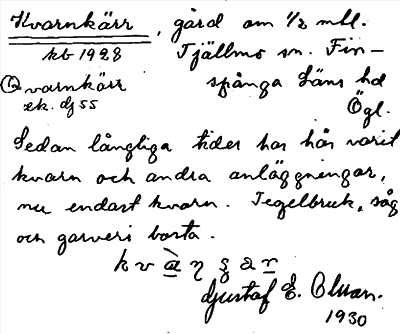 Kvarnkärr, gård om 1/2 mtl.
kb 1928 Tjällmo sn. Fin-
Qvarnkärr spånga läns hd
ek. dj 55 Ögl.
Sedan långliga tider har här varit
kvarn och andra anläggningar,
nu endast kvarn. Tegelbruk, såg
och garveri borta.
Gustaf E. Olsson.
1930